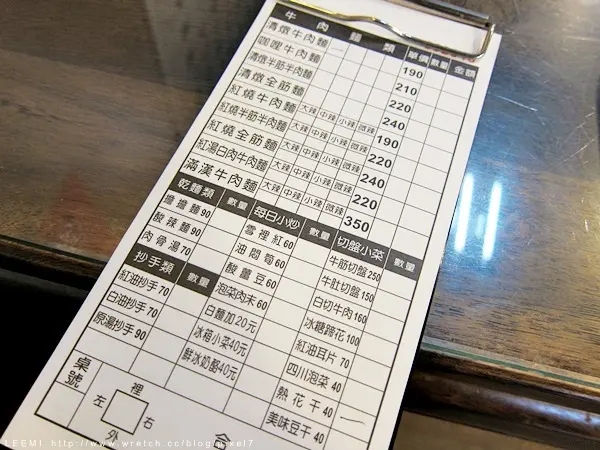 牛肉麵類 單價 數量 金額
清燉牛肉麵 190
咖哩牛肉麵 210
清燉半筋半肉麵 220
清燉全筋麵 240
紅燒牛肉麵 大辣 中辣 小辣 微辣 190
紅燒半筋半肉麵 大辣 中辣 小辣 微辣 220
紅燒全筋麵 大辣 中辣 小辣 微辣 240
紅湯白肉牛肉麵 大辣 中辣 小辣 微辣 220
滿漢牛肉麵 大辣 中辣 小辣 微辣 350
乾麵類 數量
擔擔麵 90
酸辣麵 90
肉骨湯 70
抄手類 數量
紅油抄手 70
白油抄手 70
原湯抄手 90
每日小炒 數量
雪裡紅 60
油悶筍 60
酸薑豆 60
泡菜肉末 60
白麵加20元
冰箱小菜40元
鮮冰奶酪40元
切盤小菜 數量
牛筋切盤 250
牛肚切盤 150
白切牛肉 160
冰糖蹄花 100
紅油耳片 70
四川泡菜 40
熱花干 40
美味豆干 40
桌號
裡
左 右
外
LEEMI http://www.wretch.cc/blog/pixel7